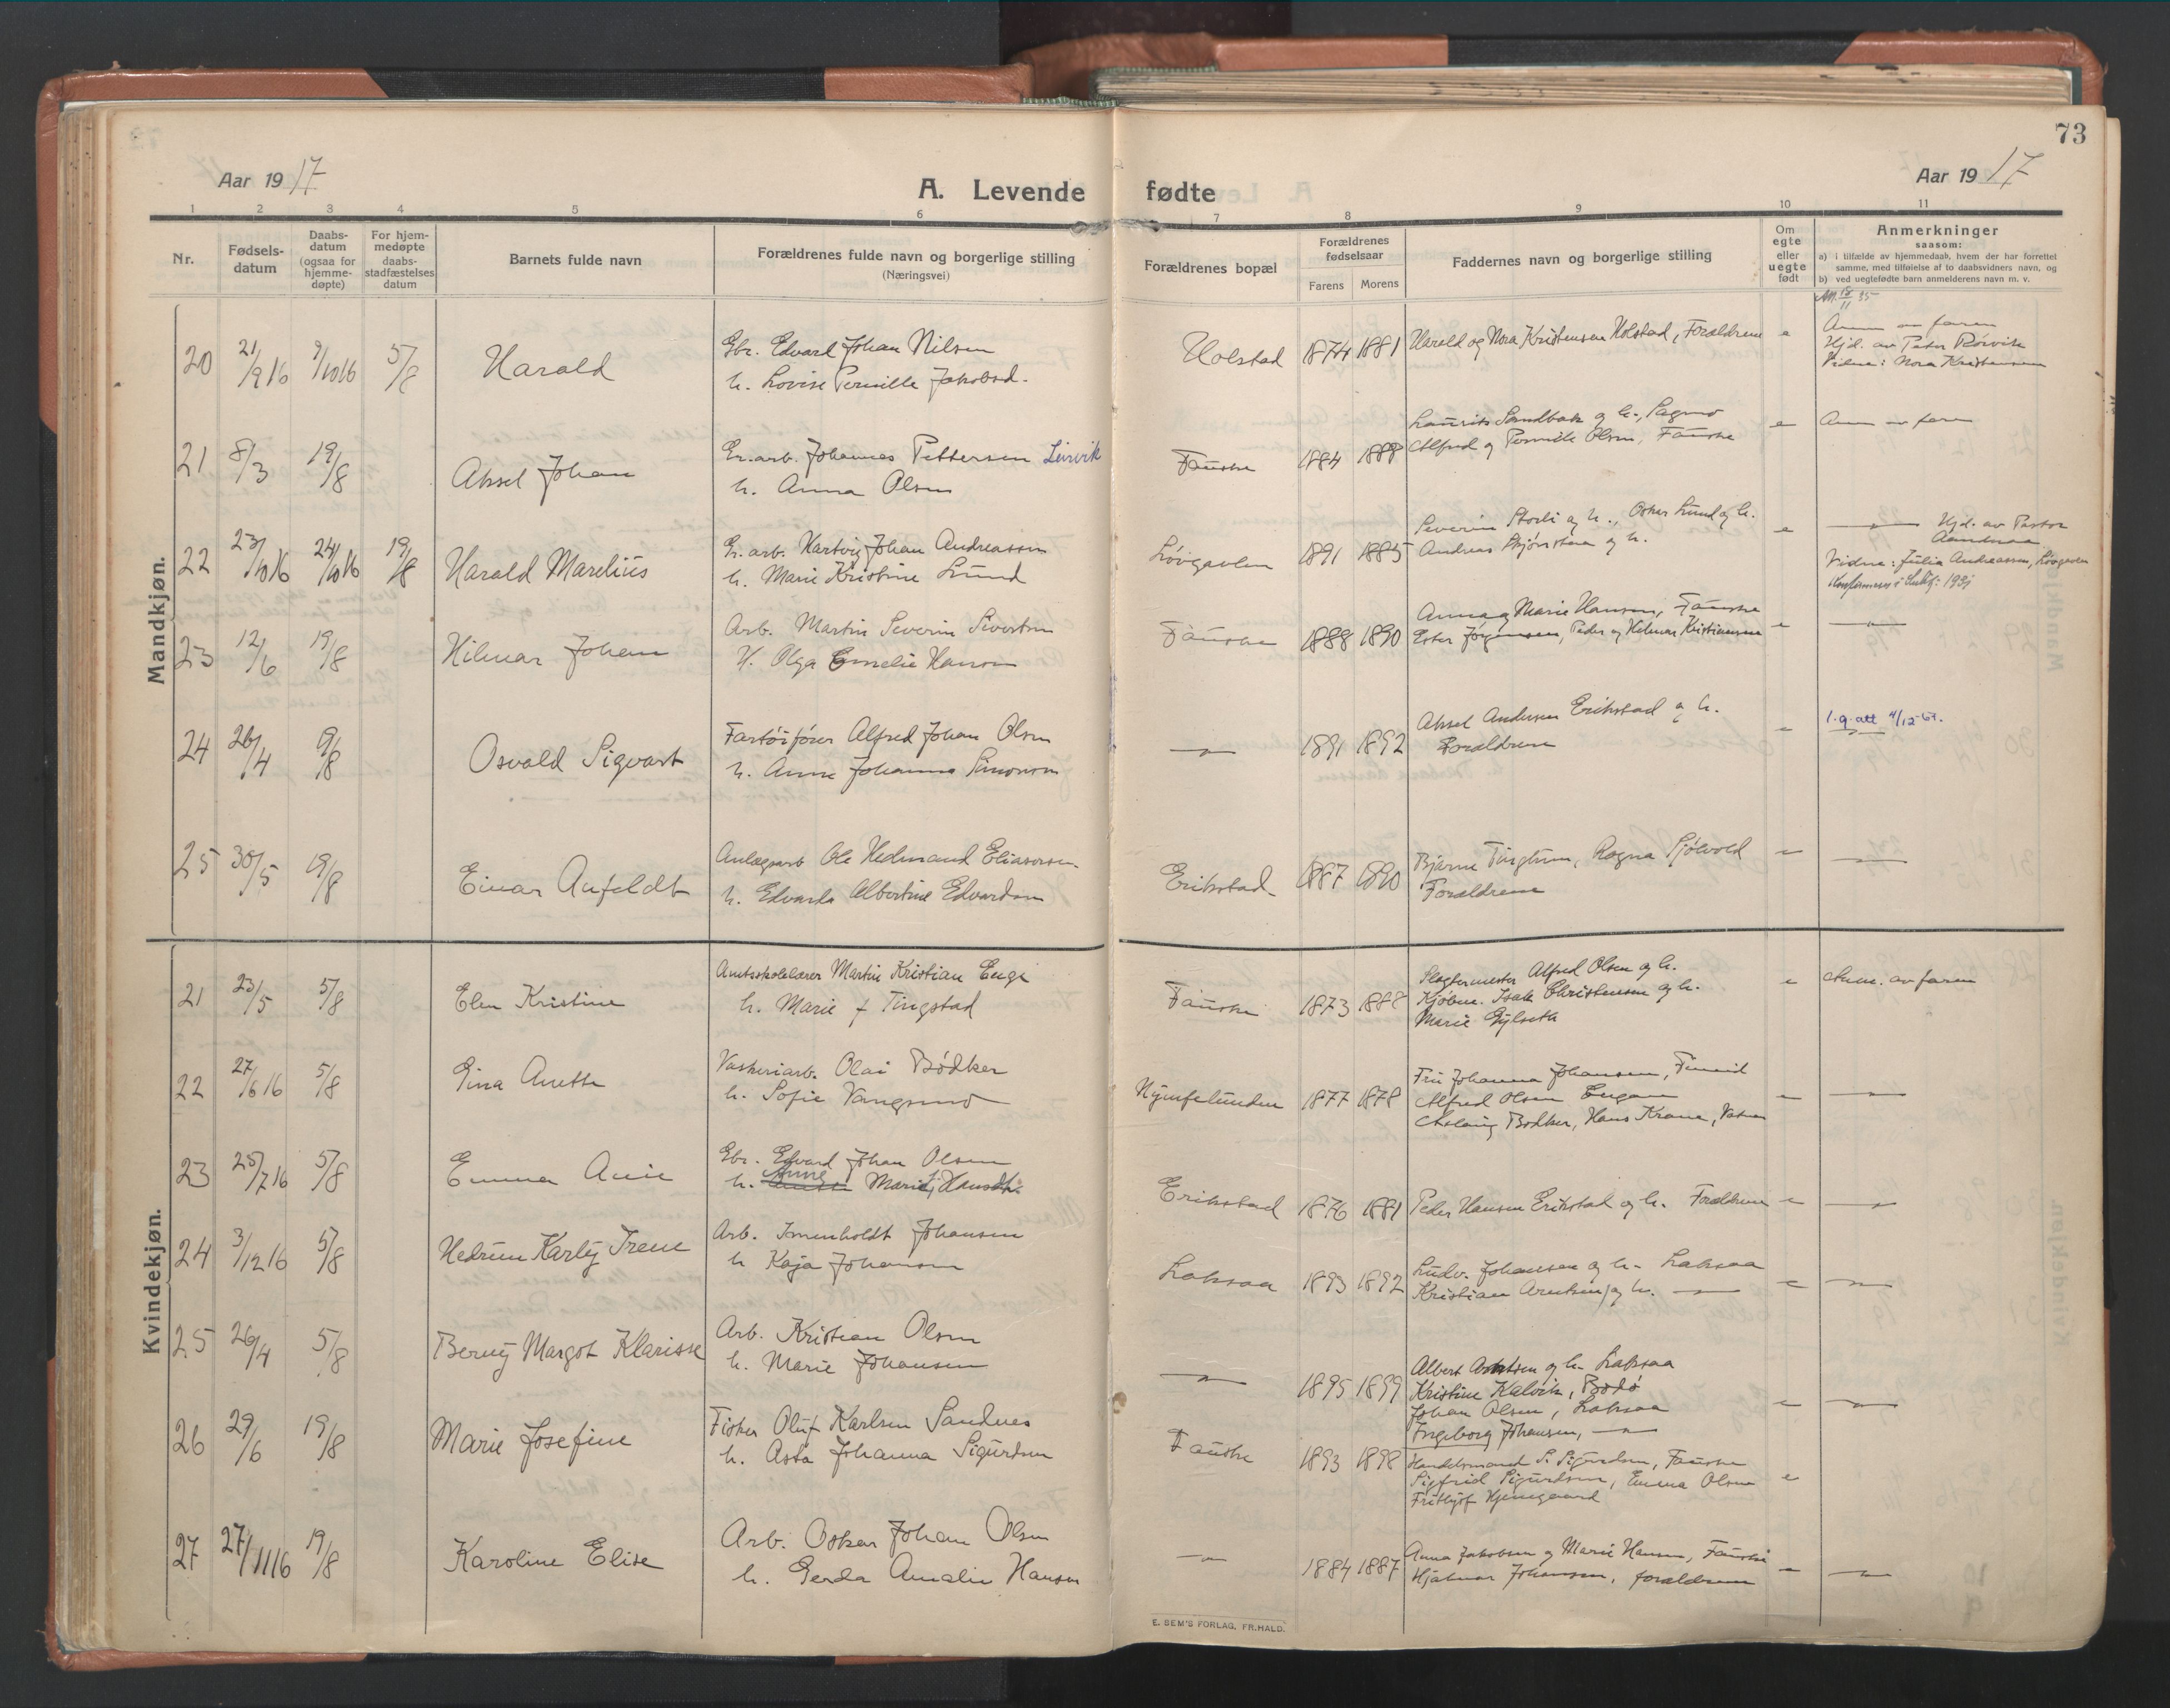 73
Aar 1917
A. Levende fødte
Aar 1917
1 2 3 4 5 6 7 8 9 10 11
Nr.
Fødsels-
datum
Daabs-
datum
(ogsaa for
hjemme-
døpte)
For hjem-
medøpte
daabs-
stadfæstelses
datum
Barnets fulde navn
Forældrenes fulde navn og borgerlige stilling
(Næringsvei)
Forældrenes bopæl
Forældrenes
fødselsaar
Farens Morens
Faddernes navn og borgerlige stilling
Om
egte
eller
uegte
født
Anmerkninger
saasom:
a) i tilfælde av hjemmedaab, hvem der har forrettet
samme, med tilføielse af to daabsvidners navn, og
b) ved uegtefødte barn anmelderens navn m. v.
Mandkjøn.
20 21/9 16 9/10 16 5/8 Harald
Gbr. Edvard Johan Nilsen
h. Lovise Pernille Jakobsd.
Holstad 1874 1881
Harald og Nora Kristensen Holstad, Forældrene
e
Att. 18/11 35
Anm av faren
Hjd. av Peter Rørvik
Vidne: Nora Kristensen
21 8/3 19/8 Aksel Johan
Gr.arb. Johannes Pettersen Leivik
h. Anna Olsen
Fauske 1884 1888
Laurits Sandbak og h., Sagmo
Alfred og Pernille Olsen, Fauske
e
Anm av faren
22 23/10 16 24/10 16 19/8 Harald Marelius
Gr.arb. Hartvig Johan Andreassen
h. Marie Kristine Lund
Løvgavlen 1891 1885
Severin Storli og h., Oskar Lund og h.
Andreas Skjønstaa og h.
e
—"— Hjd. av Pastor
Aandnaa
Vidne: Julia Andreassen, Løvgavlen
23 12/6 19/8 Hilmar Johan
Arb. Martin Severin Sivertsen
H. Olga Emelie Hansen
Fauske 1888 1890
Anna og Marie Hansen, Fauske
Ester Jørgensen, Peder og Helmer Kristiansen
e —"—
24 26/4 19/8 Osvald Sigvart
Fartøifører Alfred Johan Olsen
h. Anna Johanna Simonsen
—"— 1891 1892
Aksel Andersen Erikstad og h.
Forældrene
e
1.g. att 4/12-67.
—"—
25 30/5 19/8 Einar Anfeldt
Anlægsarb Ole Hedmand Eliassen
h. Edvarda Albertine Edvardsen
Erikstad 1887 1890
Bjarne Tingtun, Ragna Sjøvold
Forældrene
e —"—
Kvindekjøn.
21 23/5 5/8 Elen Kristine
Amtsskolelærer Martin Kristian Enge
h. Marie f Tingstad
Fauske 1873 1888
Slagtermester Alfred Olsen og h.
Kjøbm. Isak Christensen og h.
Marie Gylseth
e
Anm. av faren
22 27/6 16 5/8 Gina Anette
Vaskeriarb. Olai Bødker
h. Sofie Vangsmo
Nymfelunden 1877 1878
Fru Johanna Johansen, Finneid
Alfred Olsen Engan
Aslaug Bødker, Hans Krane,
e —"—
23 25/7 16 5/8 Emma Anie
Gbr. Edvard Johan Olsen
h. Anne Marie Hansdtr.
Erikstad 1876 1881
Peder Hansen Erikstad og h. Forældrene
e —"—
24 3/12 16 5/8 Hedrun Karly Irene
Arb. Irmenholdt Johansen
h Kaja Johansen
Laksaa 1893 1892
Ludv. Johansen og h. Laksaa
Kristian Arntsen og h. —"—
e —"—
25 26/4 5/8 Berny Margot Klarisse
Arb. Kristian Olsen
h. Marie Johansen
—"— 1895 1899
Albert Arntsen og h. Laksaa
Kristine Kalvik, Bodø
Johan Olsen, Laksaa
Ingeborg Johansen, —"—
e —"—
26 29/6 19/8 Marie Josefine
Fisker Oluf Karlsen Sandnes
h. Asta Johanna Sigurdsen
Fauske 1893 1898
Handelsmand S. Sigurdsen, Fauske
Sigfrid Sigurdsen, Emma Olsen
Frithjof Hjemgaard
e
27 27/11 16 19/8 Karoline Elise
Arb. Oskar Johan Olsen
h. Gerda Amalie Hansen
—"— 1884 1887
Anna Jakobsen og Marie Hansen, Fauske
Hjalmar Johansen, forældrene
e —"—
E. SEM'S FORLAG, FR.HALD.